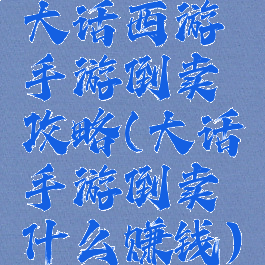 大话西游
手游倒卖
攻略(大话
手游倒卖
什么赚钱)